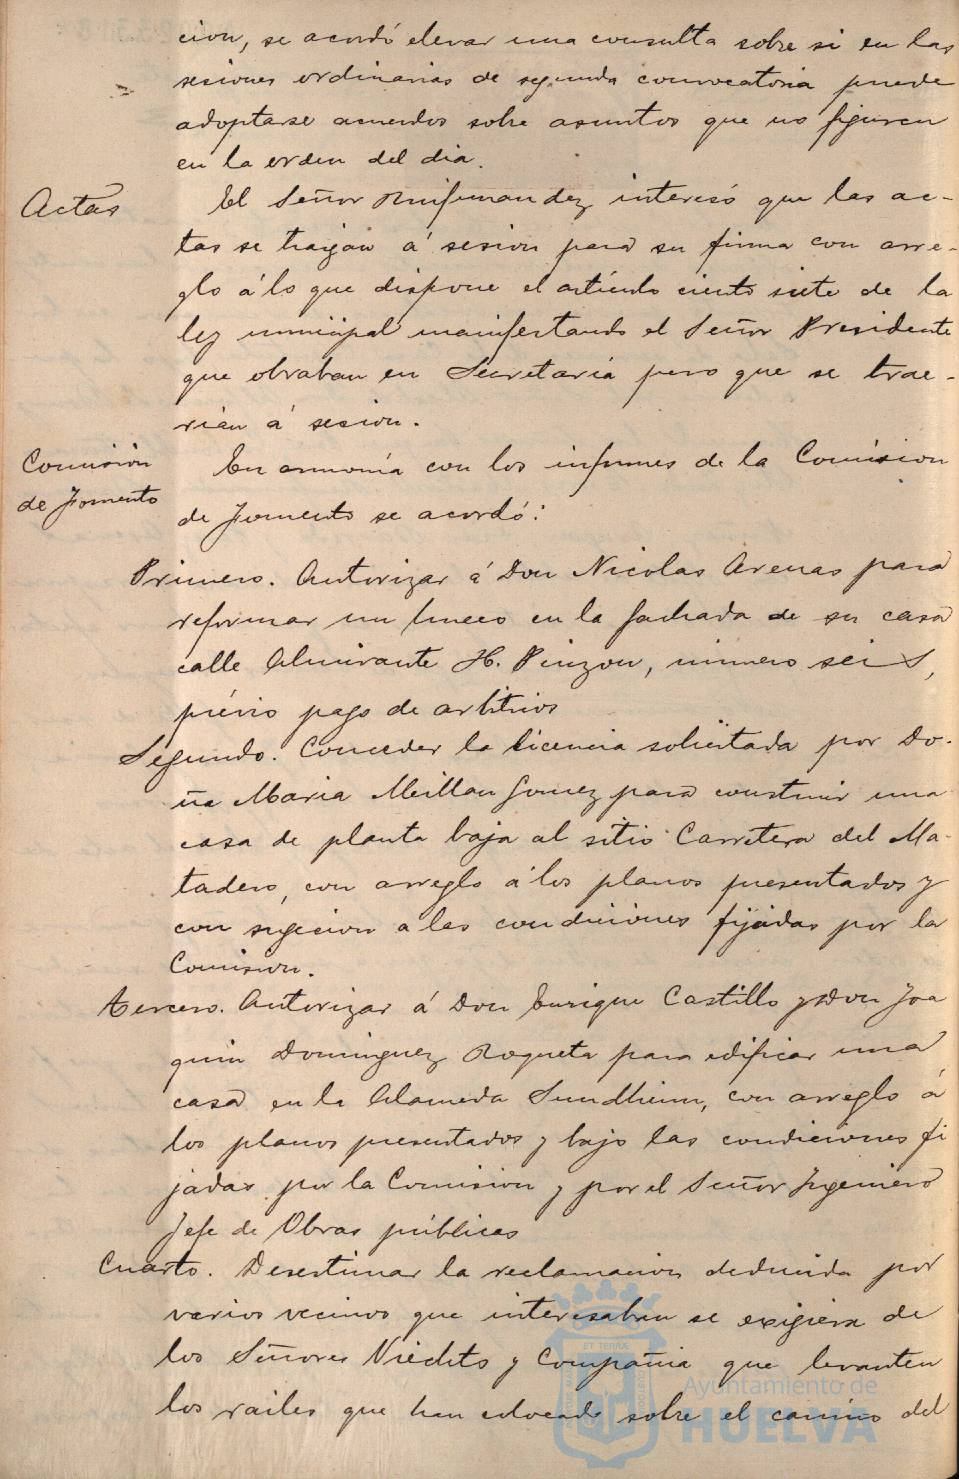 cion, se acordó elevar una consulta sobre si en las
sesiones ordinarias de segunda convocatoria puede
adoptarse acuerdos sobre asuntos que no figuren
en la orden del dia.
Actas
El Señor Ruifernandez interesó que las ac-
tas se traigan á sesion para su firma con arre-
glo á lo que dispone el artículo ciento siete de la
ley municipal manifestando el Señor Presidente
que obraban en Secretaria pero que se trae-
rian á sesion.
Comisión
de Fomento
En armonía con los informes de la Comision
de Fomento se acordó:
Primero. Autorizar á Don Nicolas Arenas para
reformar un hueco en la fachada de su casa
calle Almirante H. Pinzon, número seis,
prévio pago de arbitrios
Segundo. Conceder la licencia solicitada por Do-
ña Maria Millan Gomez para construir una
casa de planta baja al sitio Carretera del Ma-
tadero, con arreglo á los planos presentados y
con sugecion a las condiciones fijadas por la
Comision.
tercero. Autorizar á Don Enrique Castillo y Don Joa
quin Dominguez Roqueta para edificar una
casa en la Alameda Sundheim, con arreglo á
los planos presentados y bajo las condiciones fi
jadas por la Comision y por el Señor Ingeniero
Jefe de Obras públicas
Cuarto. Desestimar la reclamacion deducida por
varios vecinos que interesaban se exigiera de
los Señores y Compañia que levanten
los railes que han colocado sobre el camino del
Ayuntamiento de
HUELVA